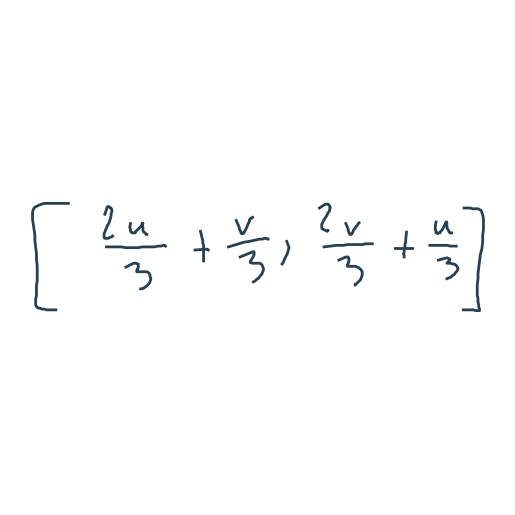 \left[ \frac{2u}{3} + \frac{v}{3}, \frac{2v}{3} + \frac{u}{3} \right]